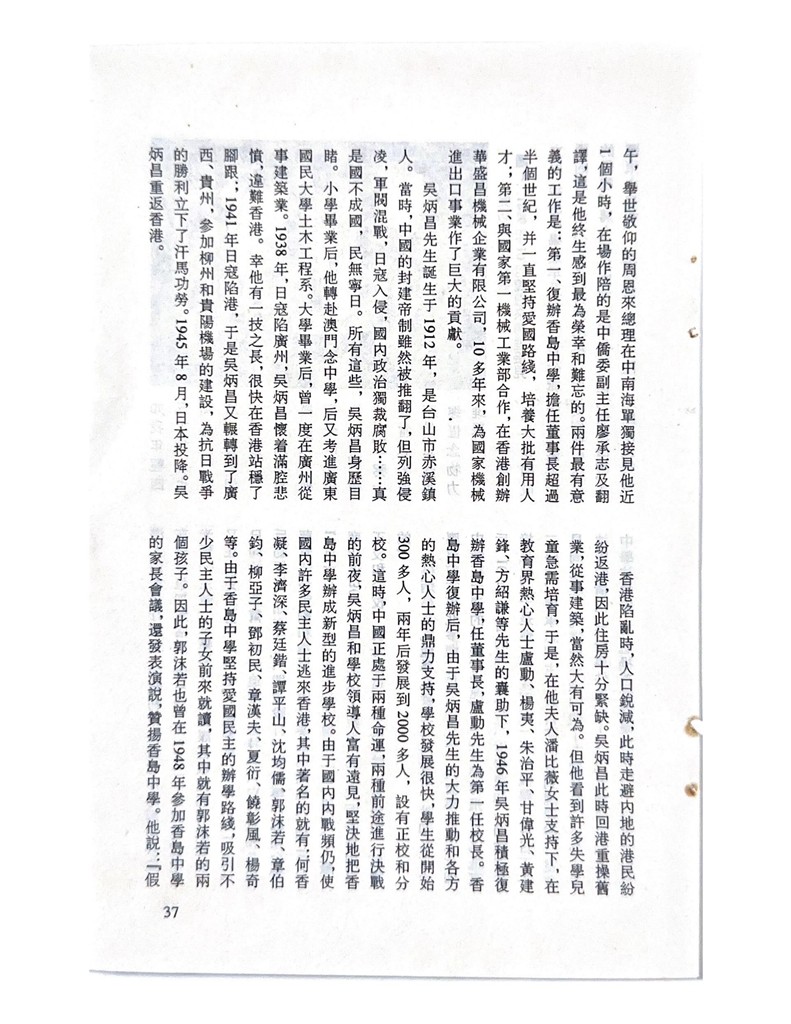 午，舉世敬仰的周恩來總理在中南海單獨接見他近
1個小時，在場作陪的是中僑委副主任廖承志及翻
譯，這是他終生感到最為榮幸和難忘的。兩件最有意
義的工作是：第一、復辦香島中學，擔任董事長超過
半個世紀，并一直堅持愛國路綫，培養大批有用人
才；第二、與國家第一機械工業部合作，在香港創辦
華盛昌機械企業有限公司，10多年來，為國家機械
進出口事業作了巨大的貢獻。
吳炳昌先生誕生于1912年，是台山市赤溪鎮
人。當時，中國的封建帝制雖然被推翻了，但列強侵
凌，軍閥混戰，日寇入侵，國内政治獨裁腐敗……真
是國不成國，民無寧日。所有這些，吳炳昌身歷目
睹。小學畢業后，他轉赴澳門念中學，后又考進廣東
國民大學土木工程系。大學畢業后，曾一度在廣州從
事建築業。1938年，日寇陷廣州，吳炳昌懷着滿腔悲
憤，違難香港。幸他有一技之長，很快在香港站穩了
腳跟；1941年日寇陷港，于是吳炳昌又輾轉到了廣
西、貴州，參加柳州和貴陽機場的建設，為抗日戰爭
的勝利立下了汗馬功勞。1945年8月，日本投降。吳
炳昌重返香港。
香港陷亂時，人口銳減，此時走避内地的港民紛
紛返港，因此住房十分緊缺。吳炳昌此時回港重操舊
業，從事建築，當然大有可為。但他看到許多失學兒
童急需培育，于是，在他夫人潘比薇女士支持下，在
教育界熱心人士盧動、楊夷、朱治平、甘偉光、黃建
鋒、方紹謙等先生的襄助下，1946年吳炳昌積極復
辦香島中學，任董事長，盧動先生為第一任校長。香
島中學復辦后，由于吳炳昌先生的大力推動和各方
的熱心人士的鼎力支持，學校發展很快，學生從開始
300多人，兩年后發展到2000多人，設有正校和分
校。這時，中國正處于兩種命運，兩種前途進行決戰
的前夜，吳炳昌和學校領導人富有遠見，堅決地把香
島中學辦成新型的進步學校。由于國内内戰頻仍，使
國内許多民主人士逃來香港，其中著名的就有：何香
凝、李濟深、蔡廷鍇、譚平山、沈均儒、郭沫若、章伯
鈞、柳亞子、鄧初民、章漢夫、夏衍、饒彰風、楊奇
等。由于香島中學堅持愛國民主的辦學路綫，吸引不
少民主人士的子女前來就讀，其中就有郭沫若的兩
個孩子。因此，郭沫若也曾在1948年參加香島中學
的家長會議，還發表演說，贊揚香島中學。他說：『假
37